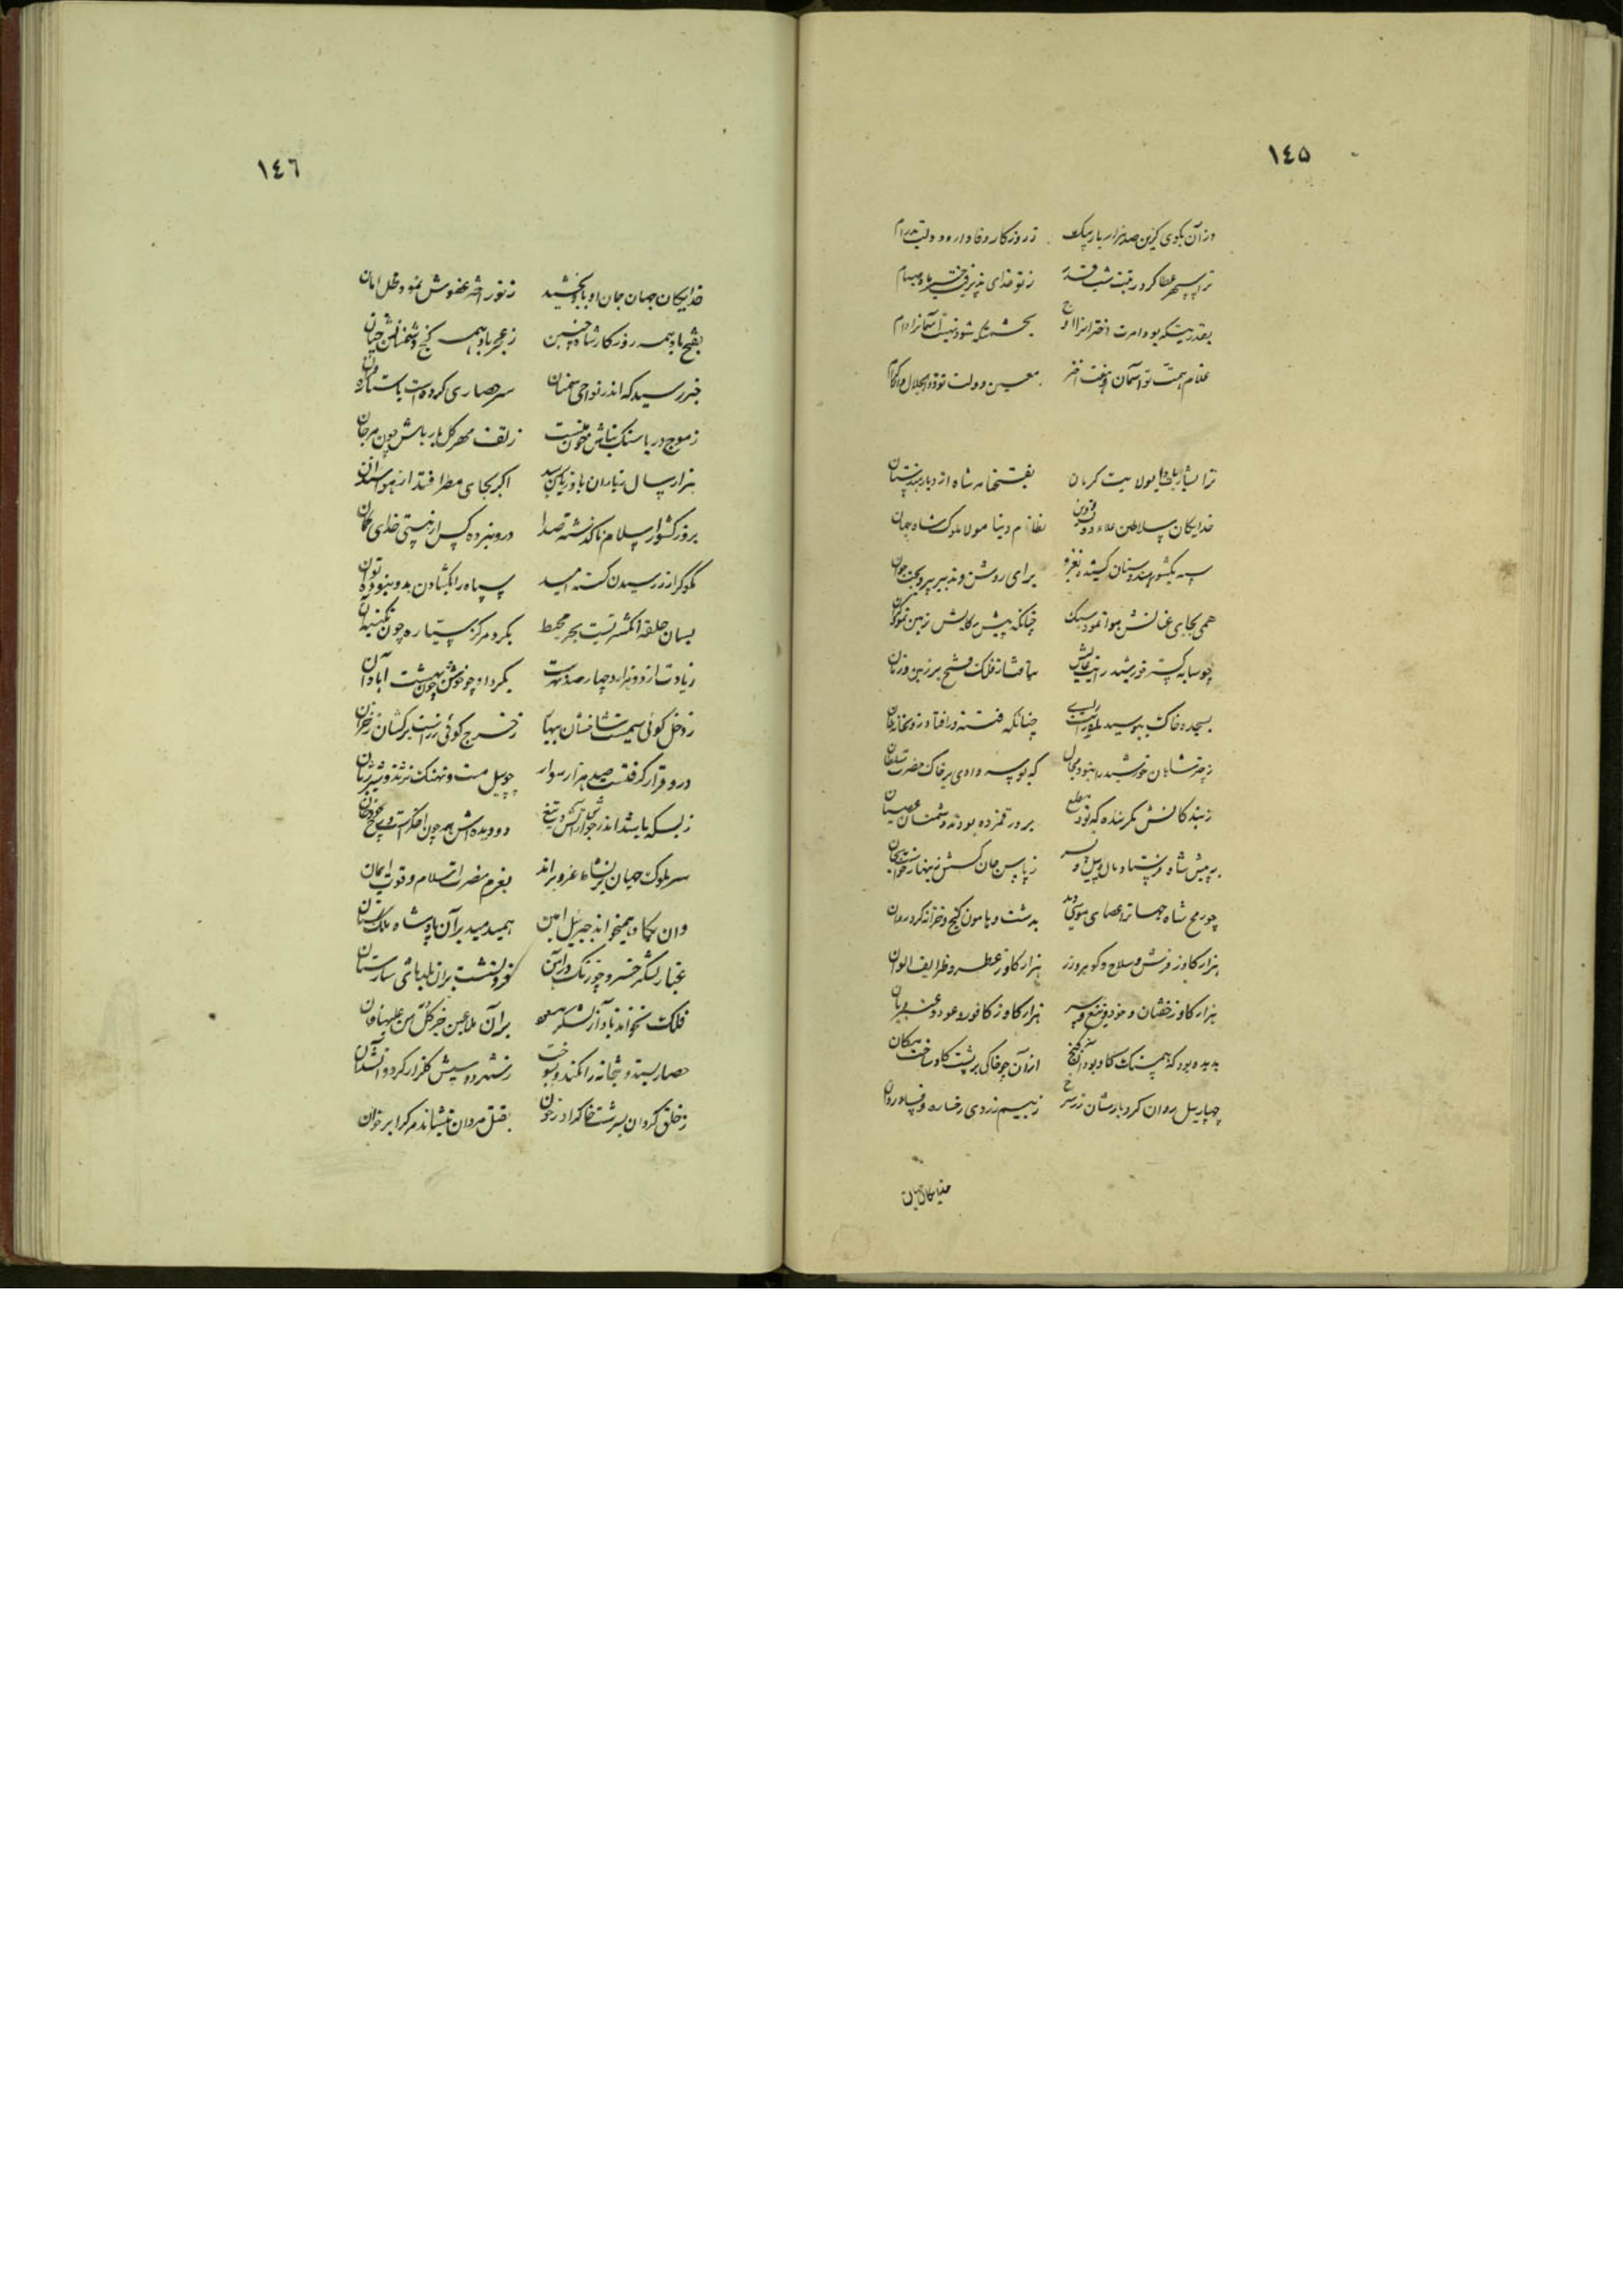 ١٤٥
وز آن بکوی کزین صد هزار بار یک ز روزکار وفا دار و دولت پدرام
ترا سپهر عطا کرد رتبت ز تو خدای پذیرفت و صیام
بقدر نیست که بود امرت اختران را اوج بحشمت شود نیت آسمانرا دام
غلام همت تو آسمان و هفت اختر معین دولت تو ذوالجلال والاکرام
ترا بشارت باد ای ولایت کرمان بفتحنامه شاه از دیار هندستان
خدایکان سلاطین علاء دولت و دین نظام دنیا مولا ملوک شاه جهان
سپه بکشور هندوستان کشید بغزو برای روشن و تدبیر پیر و بخت جوان
همی بجای عنانش هوا نمود سبک چنانکه پیش رکابش زمین نمود گران
چو سایه کسترد خورشید رایت عالیش بتافتش از فلک فتح بر زمین و زمان
بسجده خاک ببوسید رای چنانکه فتنه در افتاد زو بخانه خان
ز چتر شاهان خورشید را نبود مجال که بوسه دادی بر خاک حضرت سلطان
ز بندکانش مکر بنده که بود مطیع برور قمزده بودند دشمنان عصیان
به پیش شاه فرستاد مال و پیل و پسر ز پاس جان کسش زینهار خواست بجان
چو رمح شاه جهانرا عصای موسی دید بدشت و هامون گنج و خزانه کرد روان
هزار کاو ز فرش و سلاح و کوهر و زر هزار کاو ز عطر و ظرایف الوان
هزار کاو ز خفتان و خود و تیغ و سپر هزار کاو ز کافور و عود و عنبر و بان
بدیده بود که همسنک کاو بود آن کنج از آن چو خاکی بر پشت کاو ساخت مکان
چهار پیل روان کرد بارشان زر سرخ ز بیم زردی رخساره و فساد روان
خدایکان جهان
١٤٦
خدایکان جهان جان او باو بخشید ز نور اختر عفوش نمود محل امان
بفتح باد همه روزکار شاه چنین ز عجز باد همه کنج دشمنانش چنان
خبر رسید که اندر نواحی سمنان سر حصاری کرده است با ستاره قران
ز موج دریا سنک بناش چون مینست ز تف مهر کل باره‌اش چون مرجان
هزار سال ز باران باو زیان نرسد اکر بجای مطر افتد از هوا سندان
بروز کشور اسلام ناکذشته صدا درو نبرده کس از نیستی خدای کمان
مکو کر از در رسیدن کسسته امید سپاه را بکشادن بدو نبوده توان
بسان حلقه انکشتریست بحر محیط بکرد مرکز سیاره چون نکینه آن
زیادت از دو هزار و چهارصد دهست بکرد او چو خوش چون بهشت آبادان
ز دخل کوئی سیمست شاخشان بهار ز خرج کوئی زر است برکشان ز خزان
درو قرار کرفتست صد هزار سوار چو پیل مست و نهنک نژند و شیر ژیان
ز بسکه باشد اندر جوار آتش تیغ دو دیده‌اش همه چون اخکر است
سر ملوک جهان بر نشاط غزو براند بعزم نصرت اسلام و قوت ایمان
وان یکاد همیخواند جبرئیل امین همیدمید بر آن پادشاه ملک ستان
غبار لشکر خسرو چو زنک بر آهن فرو نشست بر آن بلدهای شارستان
فلک نخواند باواز لشکر منصور بر آن ملاعین جز کل من علیها فان
حصار بستد و بتخانه را بکند و بسوخت ز شهر دوستیش کلزار کرد و آتشدان
ز خلق کردان بسرشت خاکرا در خون بقتل مردان بنشاند مر کرا بر خوان